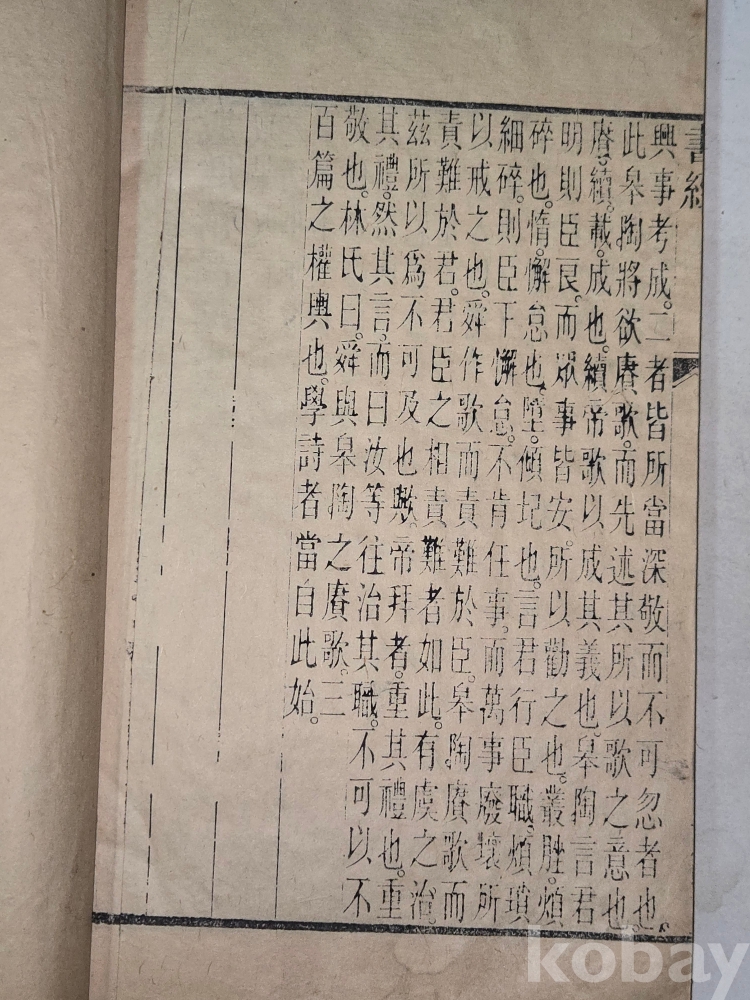 書經
興事考成。二者皆所當深敬而不可忽者也。
此皋陶將欲賡歌。而先述其所以歌之意也。
賡。續。載。成也。續帝歌以成其義也。皋陶言君
明則臣良。而眾事皆安。所以勸之也。叢脞。煩
碎也。惰。懈怠也。墮。傾圮也。言君行臣職。煩瑣
細碎。則臣下懈怠。不肯任事。而萬事廢壞。所
以戒之也。舜作歌而責難於臣。皋陶賡歌而
責難於君。君臣之相責難者如此。有虞之治。
茲所以爲不可及也歟。帝拜者。重其禮也。重
其禮。然其言。而曰汝等往治其職。不可以不
敬也。林氏曰。舜與皋陶之賡歌。三
百篇之權輿也。學詩者當自此始。
kobay